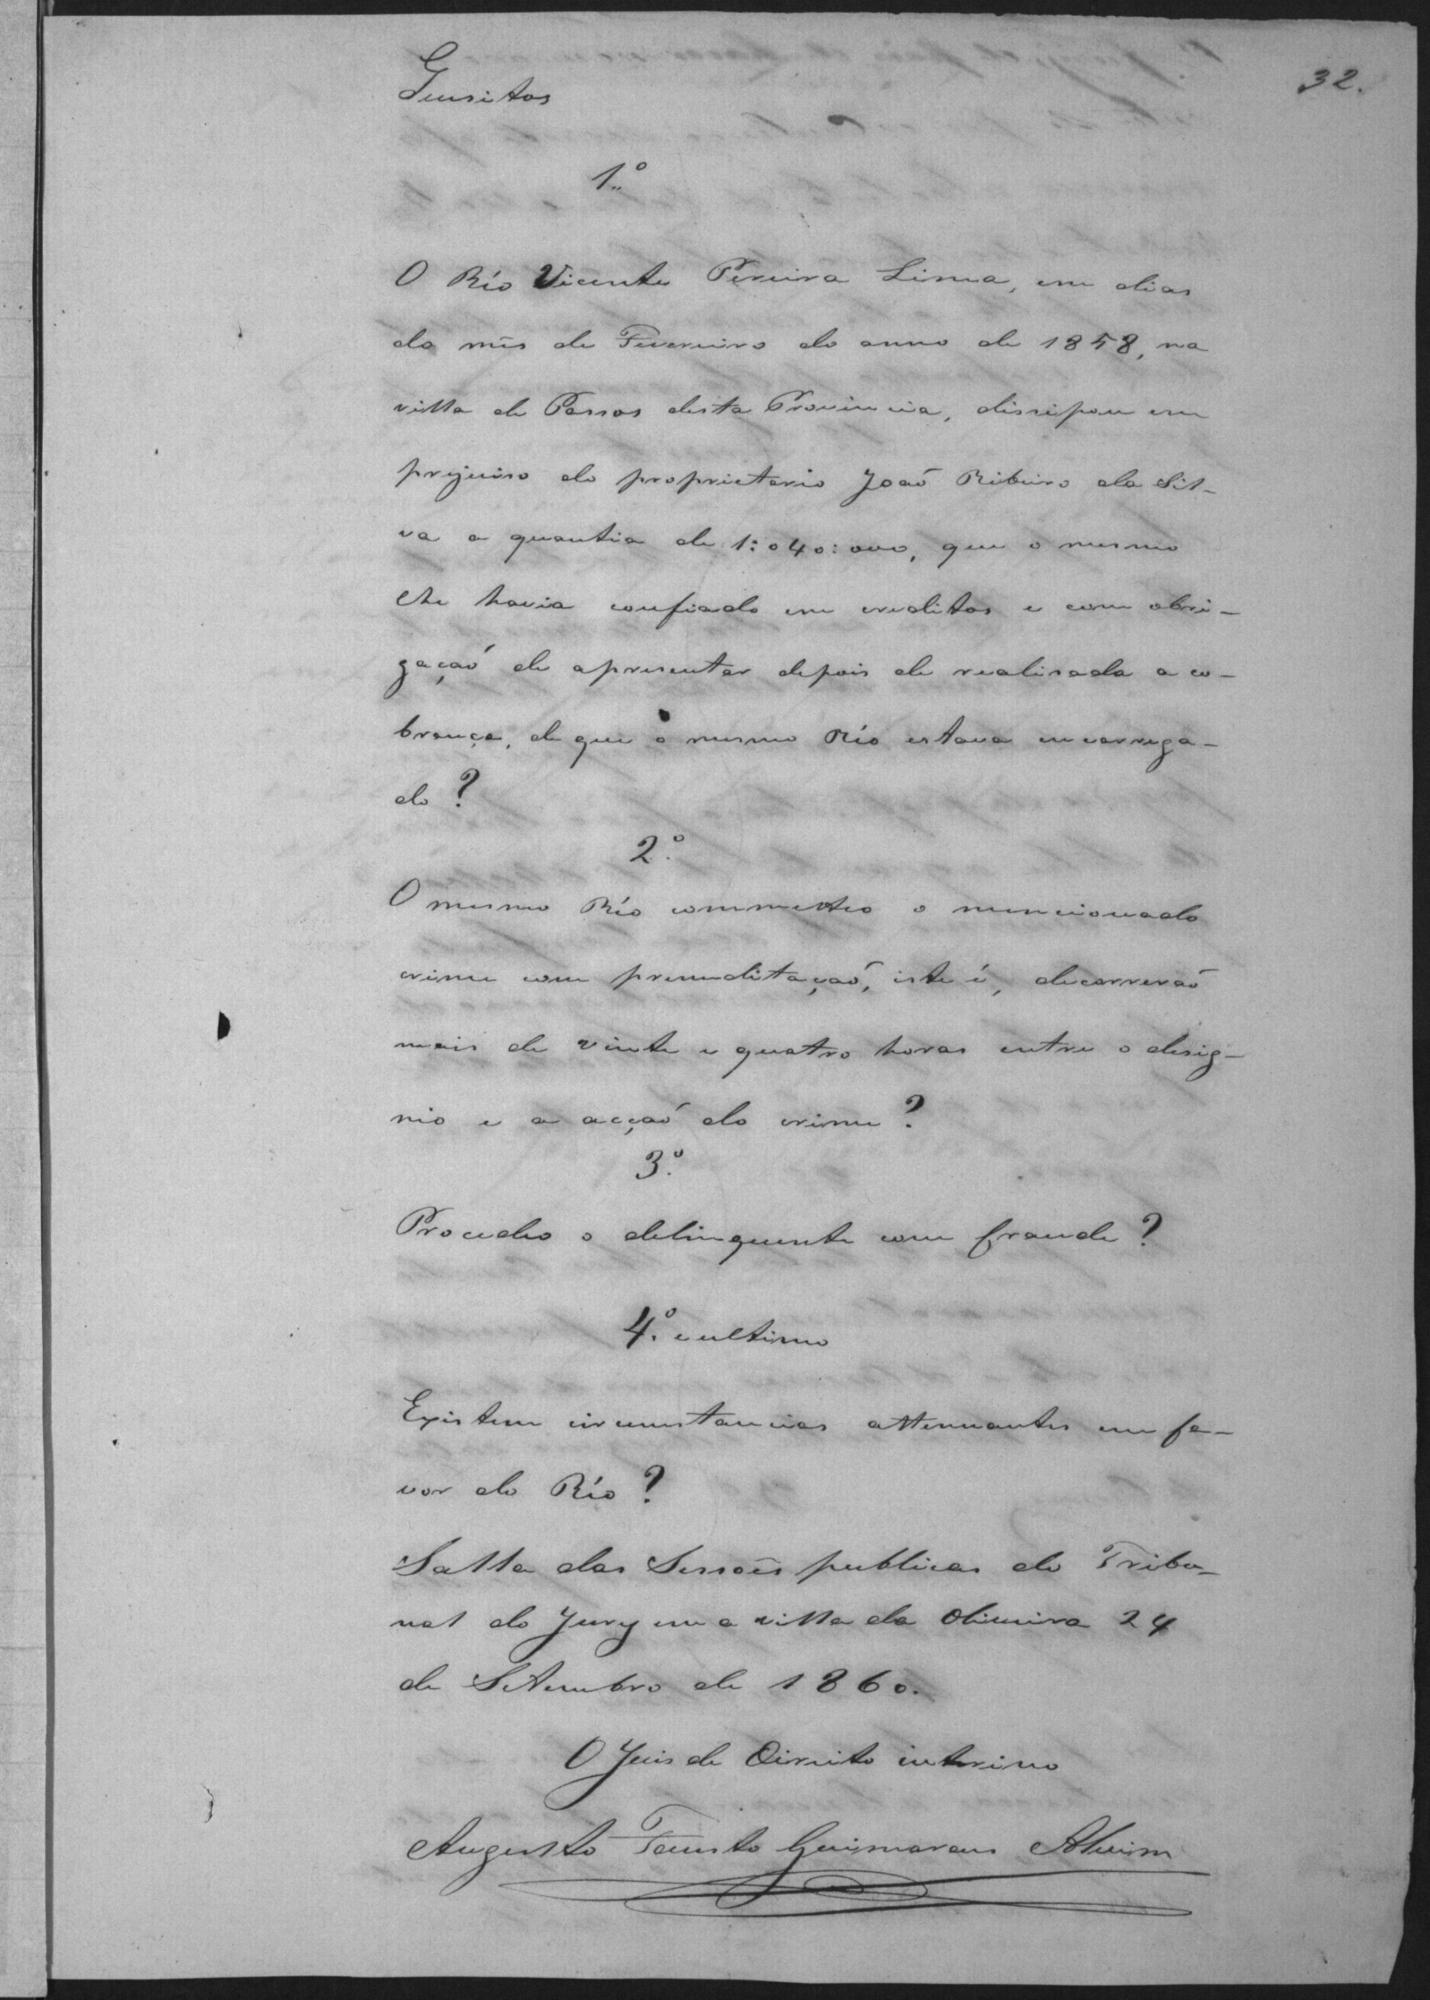 32.
Quesitos
1.º
O Réo Vicente Pereira Lima, em dias
do mês de Fevereiro do anno de 1858, na
villa de Passos desta Provincia, dissipou em
prejuiso do proprietario João Ribeiro da Sil-
va a quantia de 1:040:000, que o mesmo
lhe havia confiado em creditos e com obri-
gação de apresentar depois de realisada a co-
brança, de que o mesmo Réo estava encarrega-
do?
2.º
O mesmo Réo commetteo o mencionado
crime com premeditação, isto é, decorrerão
mais de vinte e quatro horas entre o desig-
nio e a acção do crime?
3.º
Procedeo o delinquente com fraude?
4.º e ultimo
Existem circumstancias attenuantes em fa-
vor do Réo?
Salla das Sessoẽs publicas do Tribu-
nal do Jury em a villa da Oliveira 24
de Setembro de 1860.
O Juis de Direito interino
Augusto Fausto Guimaraens Alvim